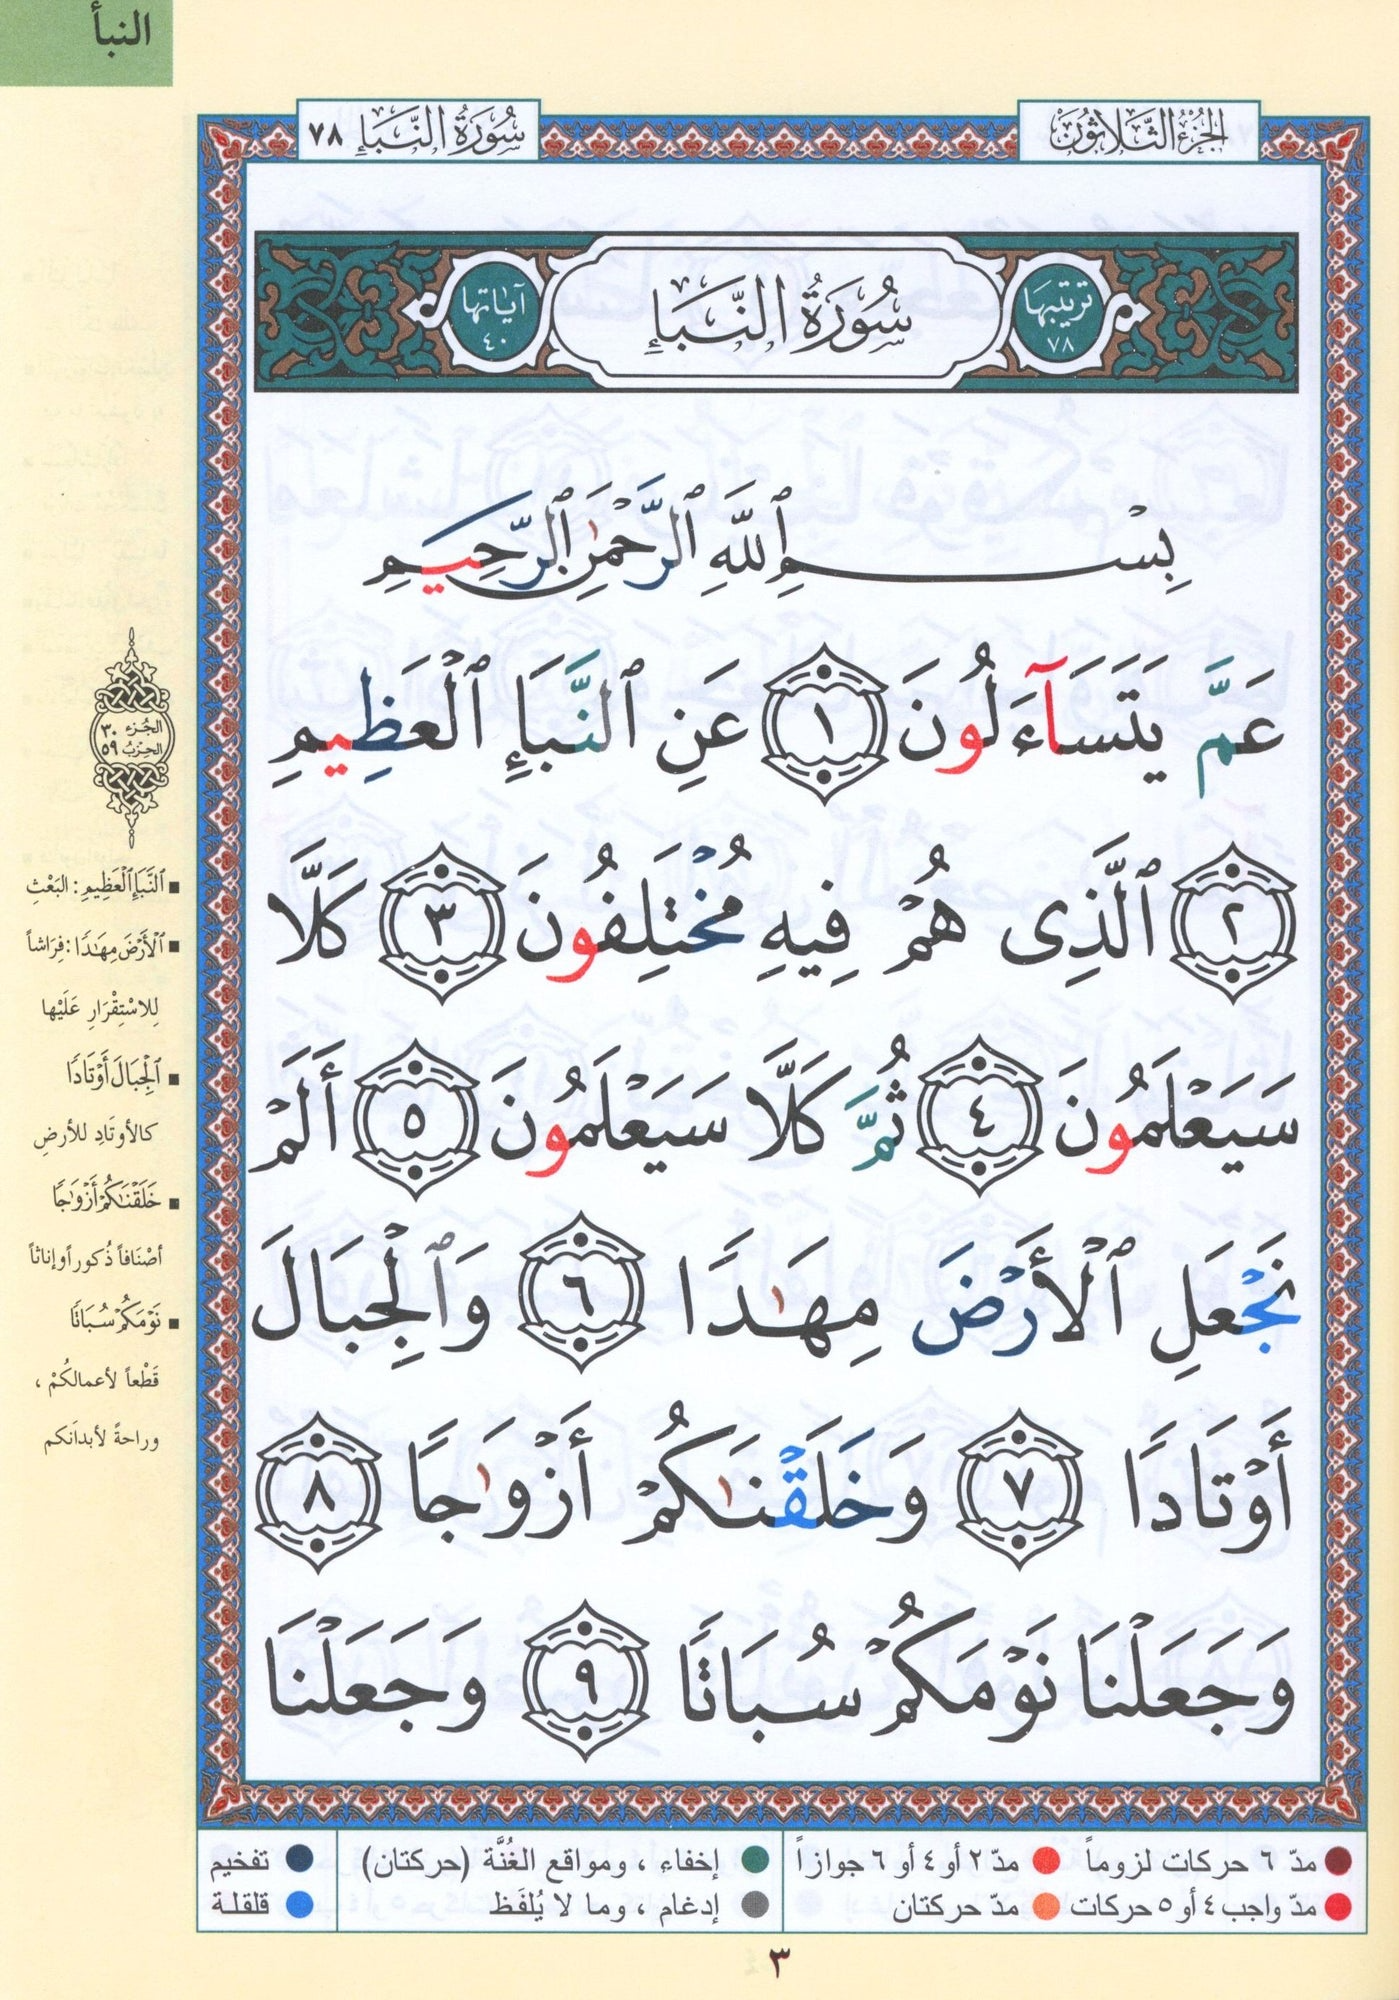 النبأ
الجُزْءُ الثَّلَاثُونَ
سُورَةُ النَّبَإِ ٧٨
ترتيبها ٧٨
سُورَةُ النَّبَإِ
آياتها ٤٠
بِسْمِ ٱللَّهِ ٱلرَّحْمَٰنِ ٱلرَّحِيمِ
عَمَّ يَتَسَآءَلُونَ ١ عَنِ ٱلنَّبَإِ ٱلْعَظِيمِ
٢ ٱلَّذِى هُمْ فِيهِ مُخْتَلِفُونَ ٣ كَلَّا
سَيَعْلَمُونَ ٤ ثُمَّ كَلَّا سَيَعْلَمُونَ ٥ أَلَمْ
نَجْعَلِ ٱلْأَرْضَ مِهَٰدًا ٦ وَٱلْجِبَالَ
أَوْتَادًا ٧ وَخَلَقْنَٰكُمْ أَزْوَٰجًا ٨
وَجَعَلْنَا نَوْمَكُمْ سُبَاتًا ٩ وَجَعَلْنَا
الجُزء ٣٠
الحِزب ٥٩
▪ ٱلنَّبَإِ ٱلْعَظِيمِ : البَعْثِ
▪ ٱلْأَرْضَ مِهَٰدًا : فِرَاشاً
لِلاسْتِقْرَارِ عَلَيْها
▪ ٱلْجِبَالَ أَوْتَادًا
كالأوتَادِ للأرضِ
▪ خَلَقْنَٰكُمْ أَزْوَٰجًا
أصْنَافاً ذُكوراً وإناثاً
▪ نَوْمَكُمْ سُبَاتًا
قَطْعاً لأعمالكُمْ ،
وراحةً لأبدانكم
مدّ ٦ حركات لزوماً ● مدّ ٢ أو ٤ أو ٦ جوازاً
مدّ واجب ٤ أو ٥ حركات ● مدّ حركتان
إخفاء ، ومواقع الغُنَّة (حركتان)
إدغام ، وما لا يُلفَظ
تفخيم
قلقلة
٣